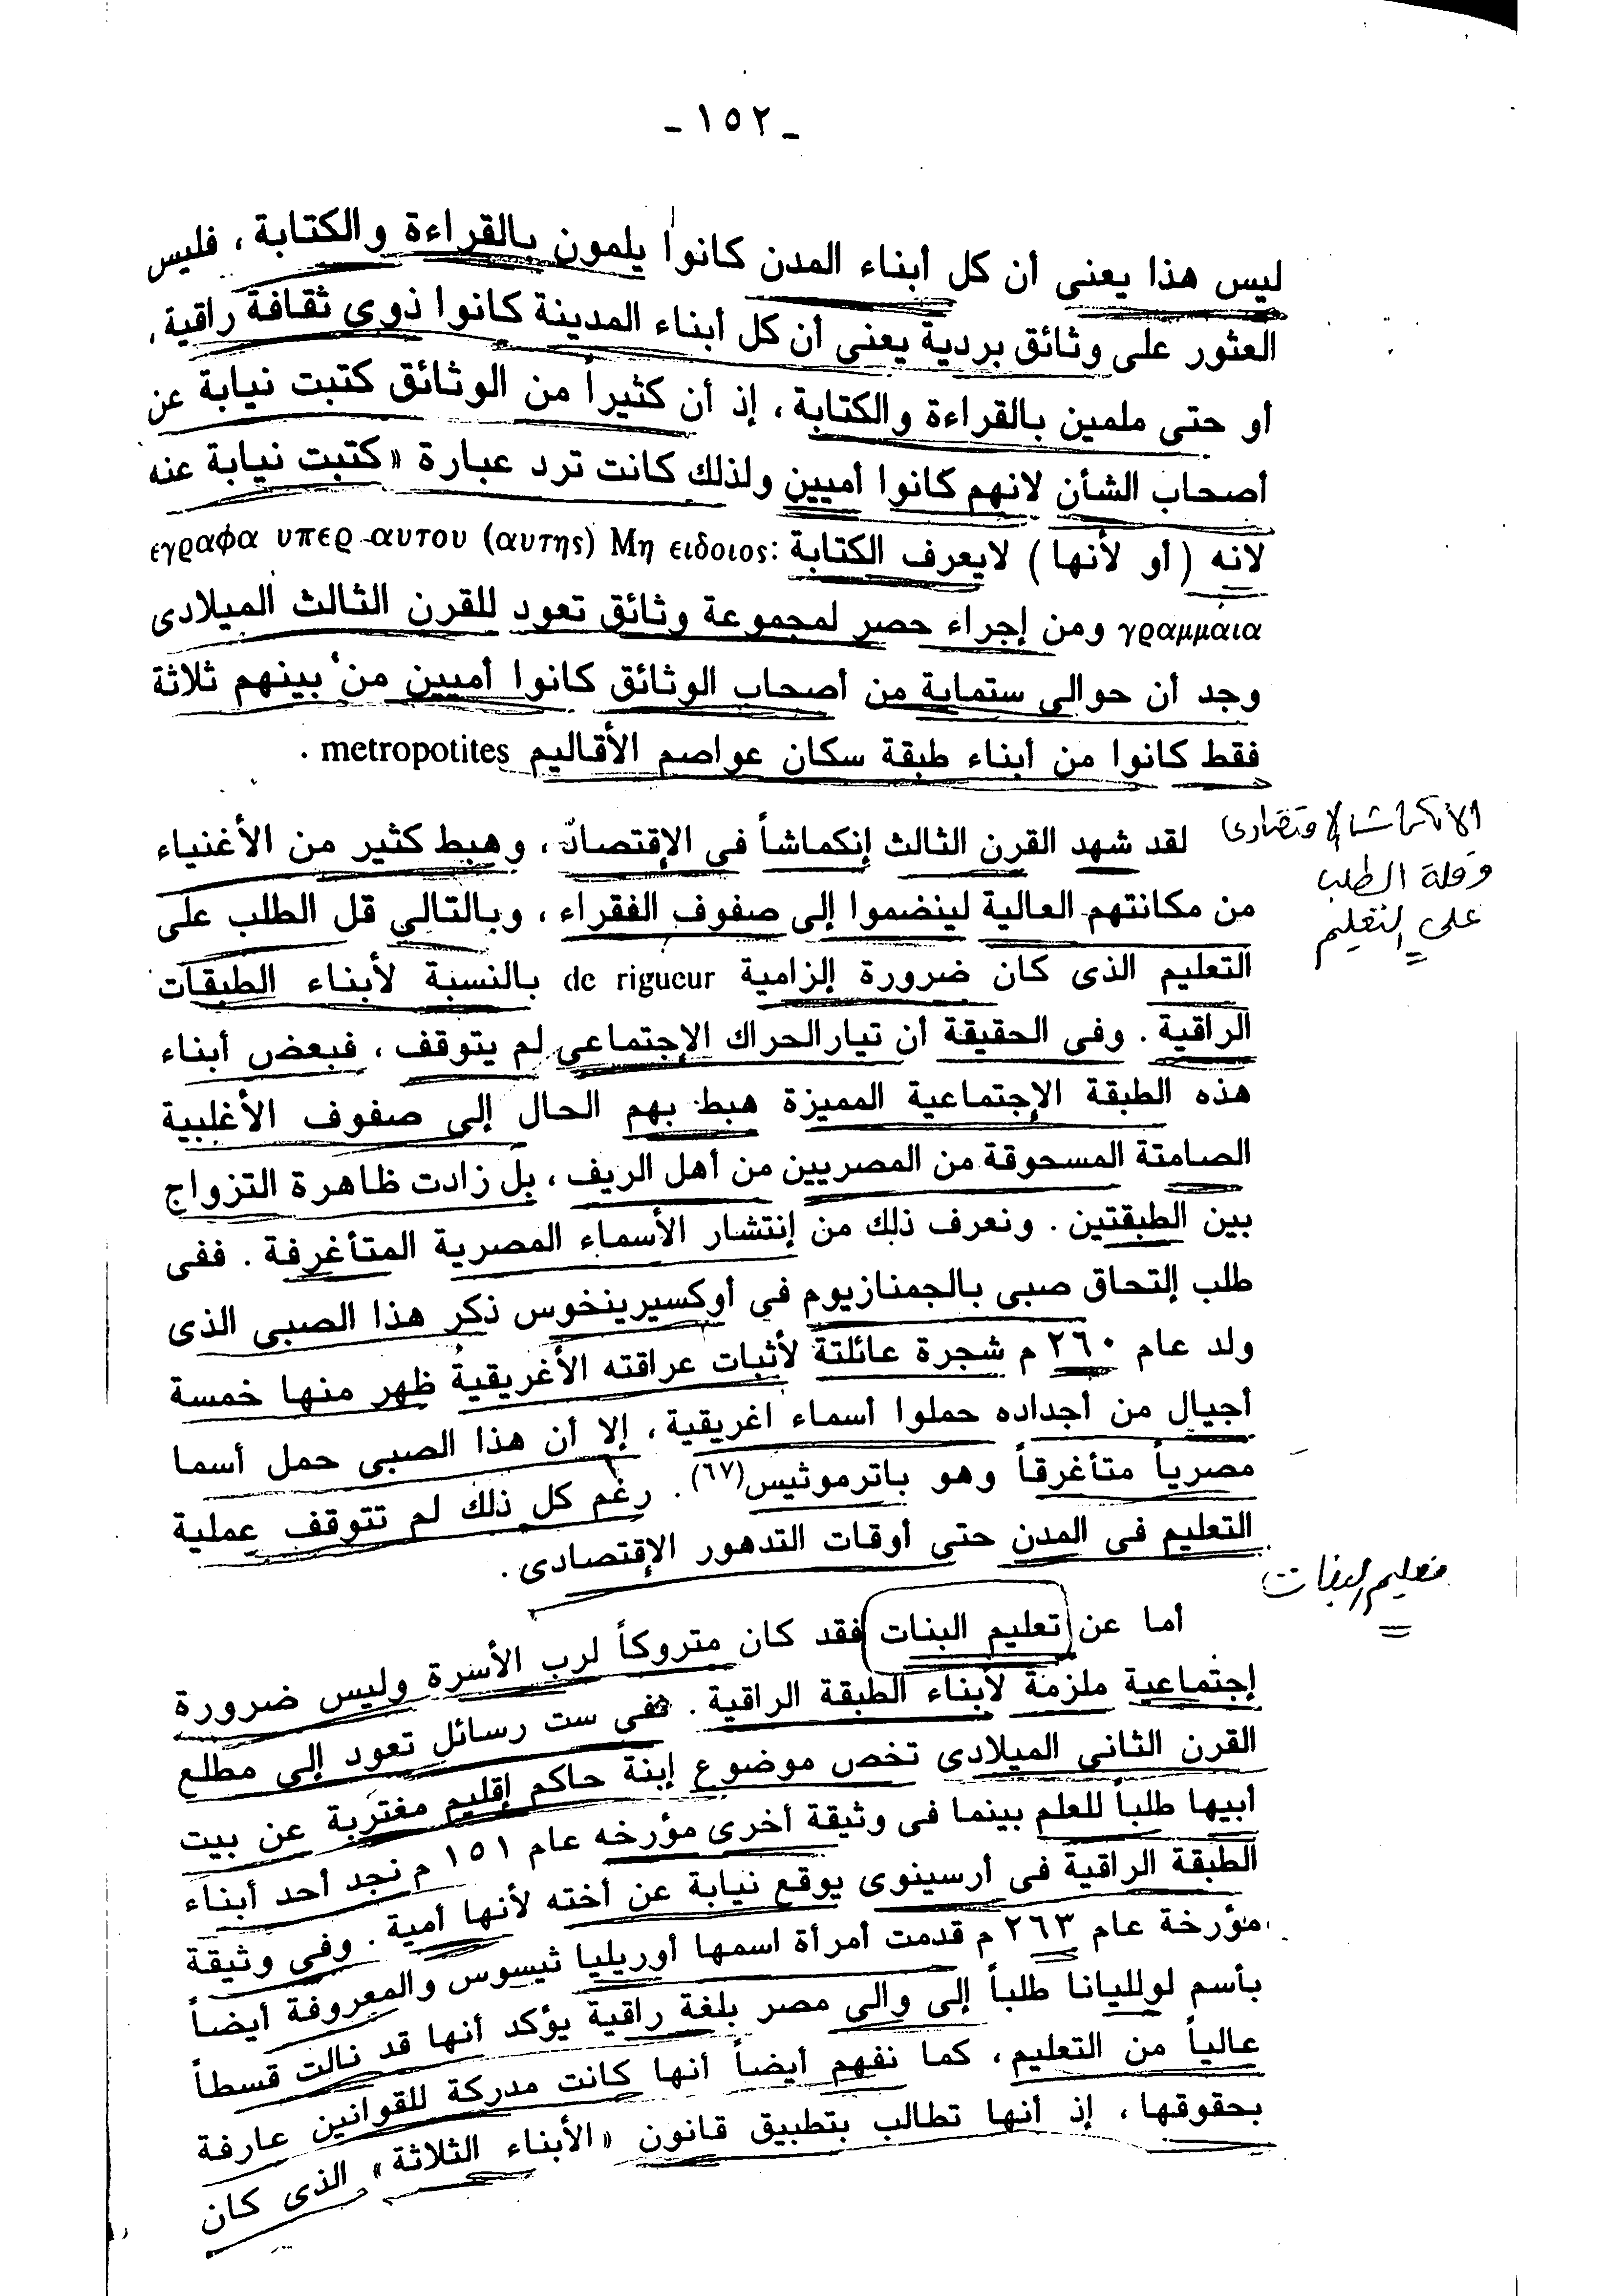 ـ ١٥٢ ـ
ليس هذا يعنى أن كل أبناء المدن كانوا يلمون بالقراءة والكتابة ، فليس
العثور على وثائق بردية يعنى أن كل أبناء المدينة كانوا ذوى ثقافة راقية ،
أو حتى ملمين بالقراءة والكتابة ، إذ أن كثيراً من الوثائق كتبت نيابة عن
أصحاب الشأن لانهم كانوا أميين ولذلك كانت ترد عبارة « كتبت نيابة عنه
لانه ( أو لأنها ) لايعرف الكتابة : εγραφα υπερ αυτου (αυτης) Μη ειδοιος
γραμμαια ومن إجراء حصر لمجموعة وثائق تعود للقرن الثالث الميلادى
وجد أن حوالى ستماية من أصحاب الوثائق كانوا أميين من بينهم ثلاثة
فقط كانوا من أبناء طبقة سكان عواصم الأقاليم metropotites .
لقد شهد القرن الثالث إنكماشاً في الإقتصاد ، وهبط كثير من الأغنياء
الانكماش الاقتصادى
وقلة الطلب
على التعليم
من مكانتهم العالية لينضموا إلى صفوف الفقراء ، وبالتالي قل الطلب على
التعليم الذى كان ضرورة إلزامية de rigueur بالنسبة لأبناء الطبقات
الراقية . وفى الحقيقة أن تيارالحراك الإجتماعى لم يتوقف ، فبعض أبناء
هذه الطبقة الإجتماعية المميزة هبط بهم الحال إلى صفوف الأغلبية
الصامتة المسحوقة من المصريين من أهل الريف ، بل زادت ظاهرة التزواج
بين الطبقتين . ونعرف ذلك من إنتشار الأسماء المصرية المتأغرفة . ففى
طلب إلتحاق صبى بالجمنازيوم في أوكسيرينخوس ذكر هذا الصبى الذى
ولد عام ٢٦٠ م شجرة عائلتة لأثبات عراقته الأغريقية ظهر منها خمسة
أجيال من أجداده حملوا أسماء اغريقية ، إلا أن هذا الصبى حمل أسما
مصرياً متأغرقاً وهو باترموثيس(٦٧) . رغم كل ذلك لم تتوقف عملية
التعليم فى المدن حتى أوقات التدهور الإقتصادى .
تعليم البنات
أما عن تعليم البنات فقد كان متروكاً لرب الأسرة وليس ضرورة
إجتماعية ملزمة لأبناء الطبقة الراقية . ففى ست رسائل تعود إلى مطلع
القرن الثانى الميلادى تخص موضوع إبنة حاكم إقليم مغتربة عن بيت
أبيها طلباً للعلم بينما فى وثيقة أخرى مؤرخه عام ١٥١ م نجد أحد أبناء
الطبقة الراقية فى أرسينوى يوقع نيابة عن أخته لأنها أمية . وفى وثيقة
مؤرخة عام ٢٦٣ م قدمت أمرأة اسمها أوريليا ثيسوس والمعروفة أيضاً
بأسم لولليانا طلباً إلى والى مصر بلغة راقية يؤكد أنها قد نالت قسطاً
عالياً من التعليم ، كما نفهم أيضاً أنها كانت مدركة للقوانين عارفة
بحقوقها ، إذ أنها تطالب بتطبيق قانون « الأبناء الثلاثة » الذى كان